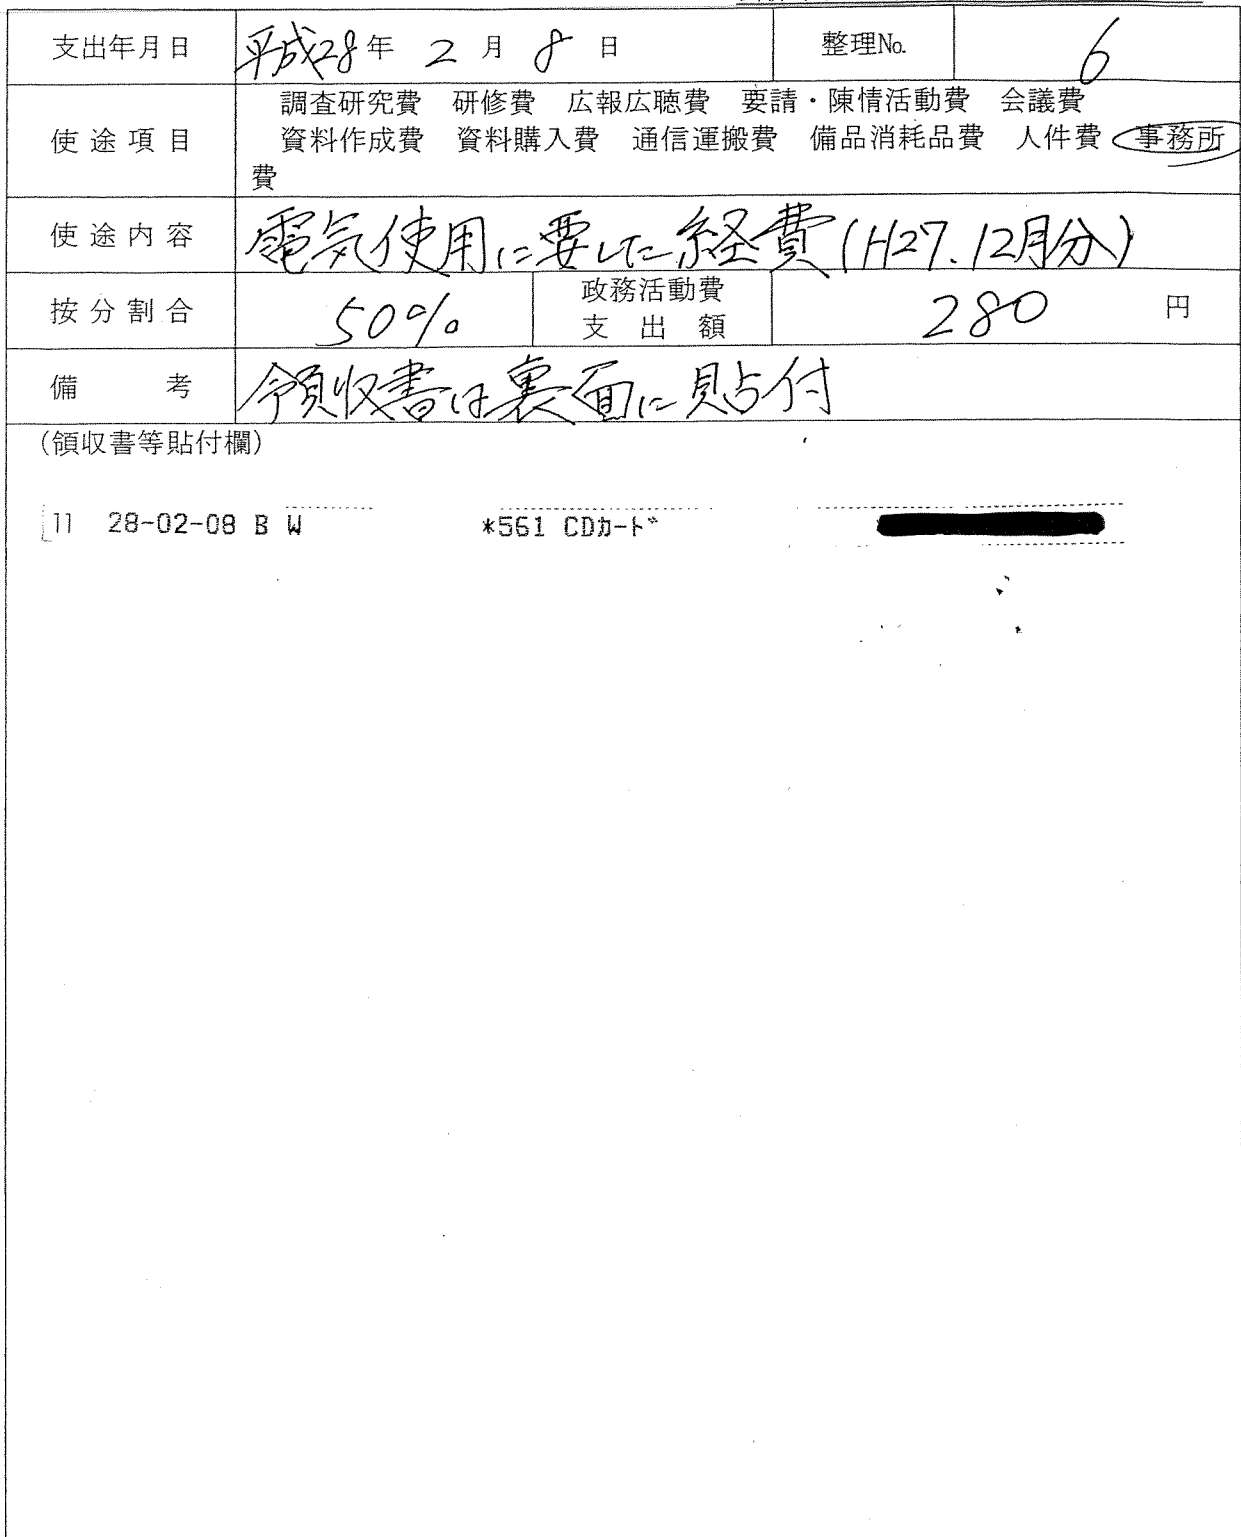 支出年月日 平成28年 2月 8日 整理No. 6
調査研究費 研修費 広報広聴費 要請・陳情活動費 会議費
使途項目 資料作成費 資料購入費 通信運搬費 備品消耗品費 人件費 事務所
費
使途内容 電気使用に要した経費(H27.12月分)
按分割合 50% 政務活動費支出額 280 円
備考 領収書は裏面に貼付
(領収書等貼付欄)
11 28-02-08 B W *561 CDカード